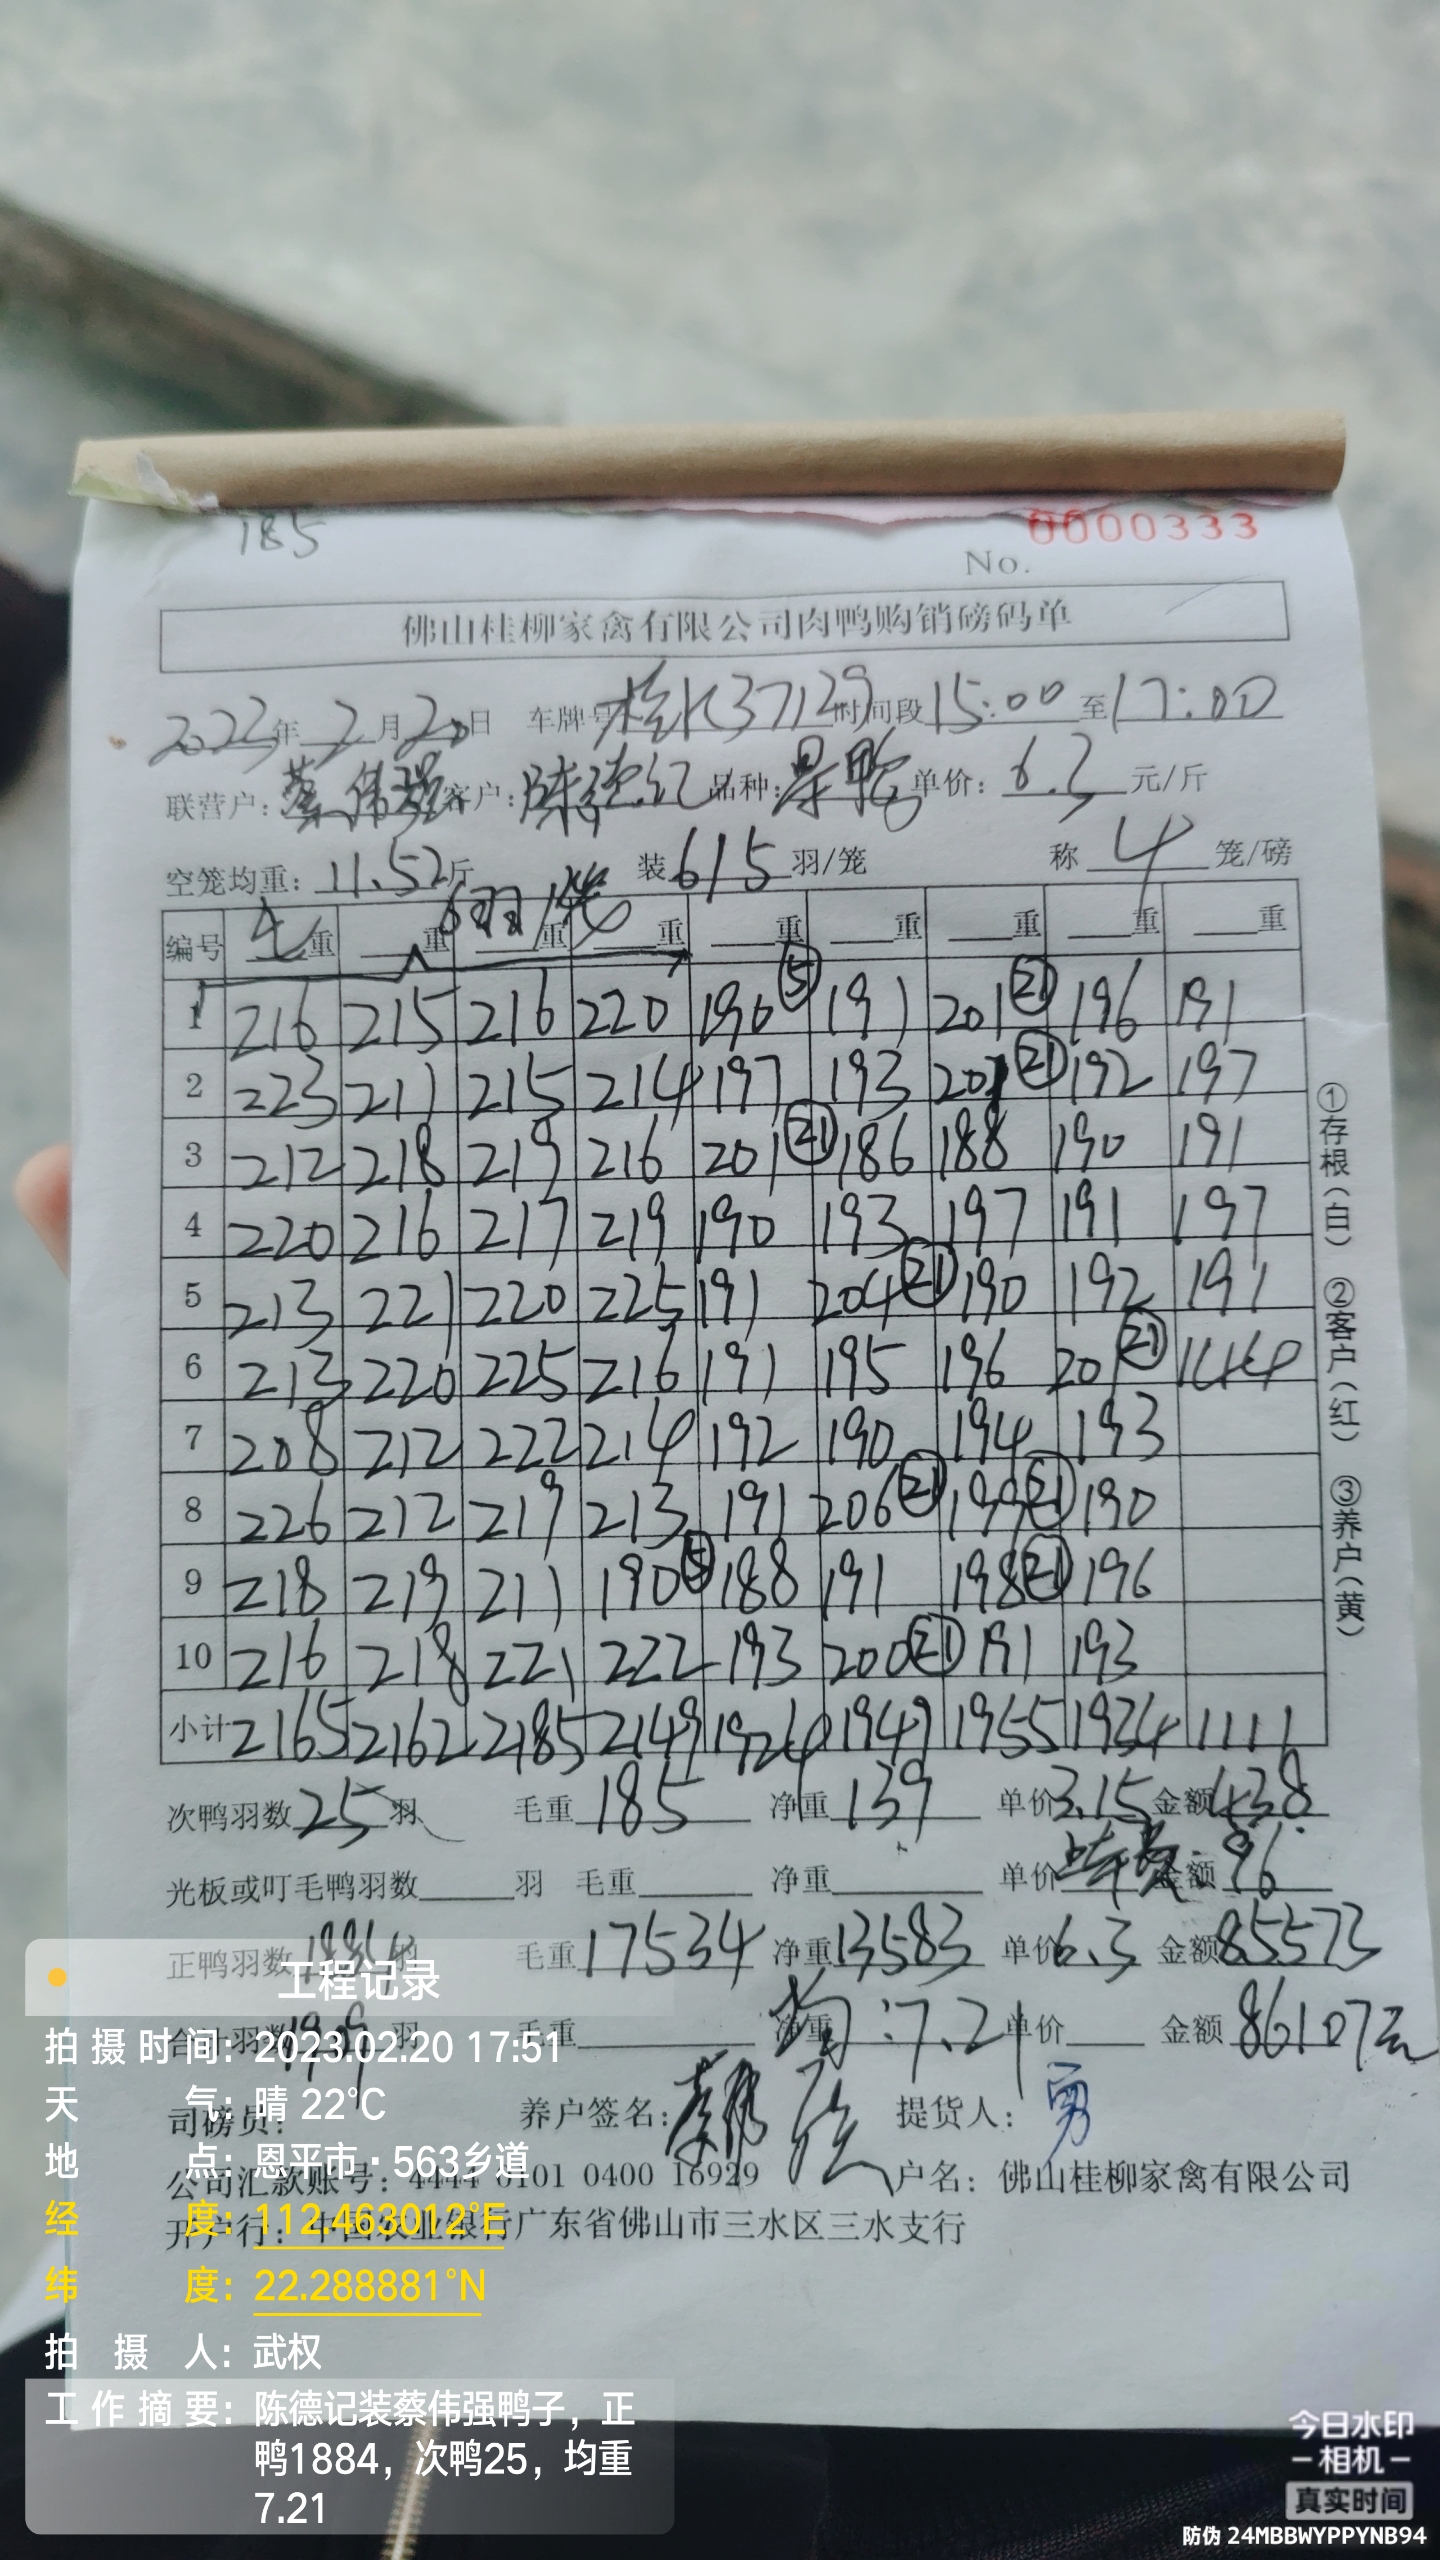 185
0000333
No.
佛山桂柳家禽有限公司肉鸭购销磅码单
2023年 2月20日 车牌号 桂K37129 时间段 15:00 至 17:00
联营户: 蔡伟强 客户: 陈德记 品种: 单价: 6.3 元/斤
空笼均重: 11.52 斤 装 6/5 羽/笼 称 4 笼/磅
6羽/笼
编号 毛重 重 重 重 重 重 重 重 重
1 216 215 216 220 190 ⑤ 191 201 ㉑ 196 191
2 223 211 215 214 197 193 201 ㉑ 192 197
3 212 218 219 216 201 ㉑ 186 188 190 191
4 220 216 217 219 190 193 197 191 197
5 213 221 220 225 191 204 ㉑ 190 192 191
6 213 220 225 216 191 195 196 201 ㉑ 144
7 208 212 222 214 192 190 194 193
8 226 212 219 213 191 206 ㉑ 199 ㉑ 190
9 218 219 211 190 ⑤ 188 191 198 ㉑ 196
10 216 218 221 222 193 200 ㉑ 191 193
小计 2165 2162 2185 2149 1924 1949 1955 1934 1111
①存根(白) ②客户(红) ③养户(黄)
次鸭羽数 25 羽 毛重 185 净重 139 单价 3.15 金额 438
光板或叮毛鸭羽数 羽 毛重 净重 单价 金额 96
正鸭羽数 1884 羽 毛重 17534 净重 13583 单价 6.3 金额 85573
合计羽数 1909 羽 毛重 净重 均:7.21 单价 金额 86107元
司磅员: 养户签名: 蔡伟强 提货人: 勇
公司汇款账号: 4444 0101 0400 16929 户名: 佛山桂柳家禽有限公司
开户行: 中国农业银行广东省佛山市三水区三水支行
工程记录
拍摄时间: 2023.02.20 17:51
天气: 晴 22℃
地点: 恩平市·563乡道
经度: 112.463012°E
纬度: 22.288881°N
拍摄人: 武权
工作摘要: 陈德记装蔡伟强鸭子，正
鸭1884，次鸭25，均重
7.21
今日水印
-相机-
真实时间
防伪 24MBBWYPPYNB94